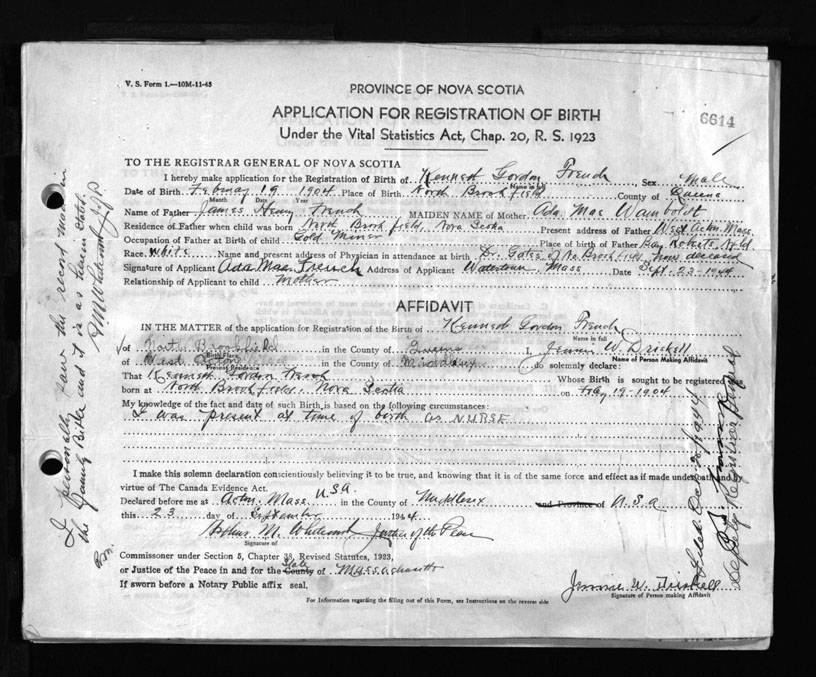 V. S. Form 1.—10M-11-43
PROVINCE OF NOVA SCOTIA
APPLICATION FOR REGISTRATION OF BIRTH
6614
Under the Vital Statistics Act, Chap. 20, R. S. 1923
TO THE REGISTRAR GENERAL OF NOVA SCOTIA
I hereby make application for the Registration of Birth of Kenneth Gordon French Sex Male
Name in full
Date of Birth. February 19 1904 Place of Birth. North Brookfield County of Queens
Month Date Year
Name of Father James Henry French MAIDEN NAME of Mother. Ada Mae Wamboldt
Residence of Father when child was born North Brookfield, Nova Scotia Present address of Father West Acton, Mass.
Occupation of Father at Birth of child Gold Miner Place of Birth of Father Bay Roberts, Nfld
Race. White Name and present address of Physician in attendance at birth Dr. Gates of No. Brookfield, now deceased
Signature of Applicant Ada Mae French Address of Applicant Watertown, Mass Date Sept. 23-1944
Relationship of Applicant to child Mother
AFFIDAVIT
IN THE MATTER of the application for Registration of the Birth of Kenneth Gordon French
Name in full
of North Brookfield in the County of Queens I, Jennie W Driskell
Birth Place Name of Person Making Affidavit
of West Acton in the County of Middlesex do solemnly declare:
Present Residence
That Kenneth Gordon French Whose Birth is sought to be registered
born at North Brookfield, Nova Scotia on Feby 19-1904
My knowledge of the fact and date of such Birth is based on the following circumstances:
I was present at time of birth as NURSE
I make this solemn declaration conscientiously believing it to be true, and knowing that it is of the same force and effect as if made under oath and by
virtue of The Canada Evidence Act.
Declared before me at Acton, Mass U.S.A. in the County of Middlesex and Province of U.S.A
this 23 day of September 1944
Arthur M. Whitcomb Justice of the Peace
Signature of
Commissioner under Section 5, Chapter 38, Revised Statutes, 1923,
or Justice of the Peace in and for the County State of Massachusetts
If sworn before a Notary Public affix seal.
Jennie W. Driskell
Signature of Person making Affidavit
For Information regarding the filling out of this Form, see Instructions on the reverse side
I personally saw the record made in
the Family Bible and it is as herein stated.
A M Whitcomb J of P
Deputy Registrar General